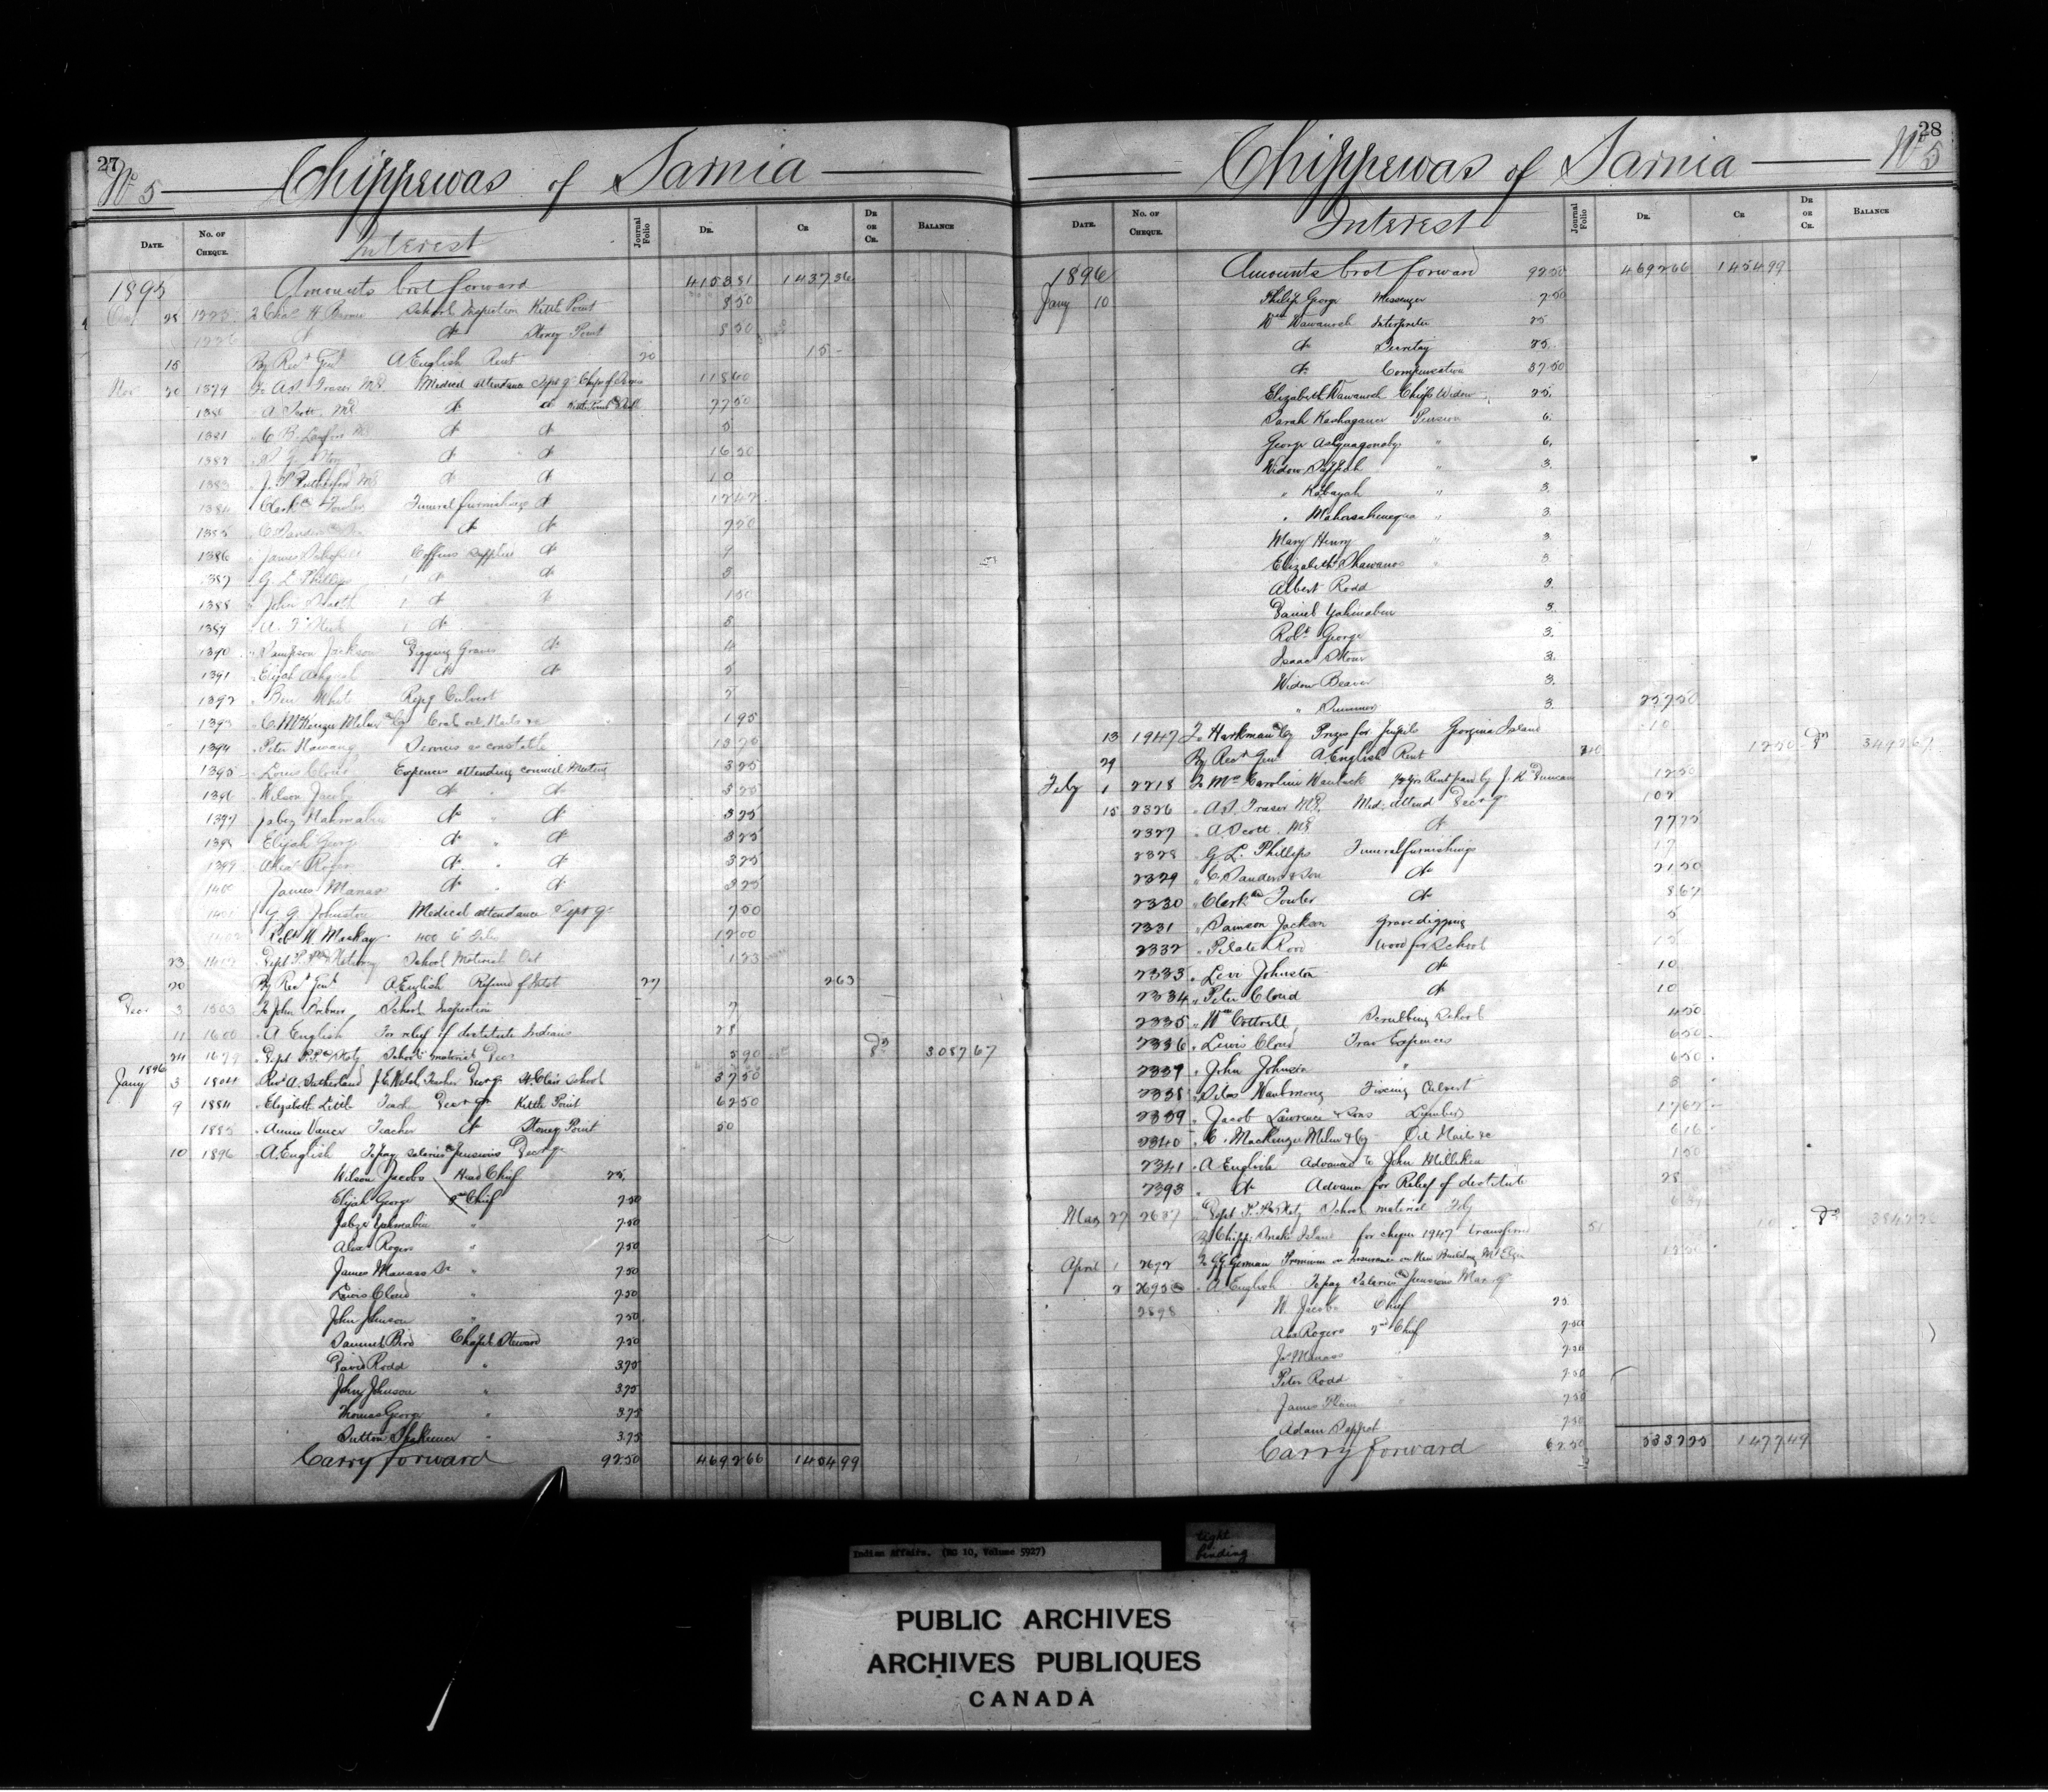 27
No 5 Chippewas of Sarnia
DATE. No. OF CHEQUE. Interest Journal Folio DR. CR DR OR CR. BALANCE
1895 Amounts brot forward 4153.81 1437.36
28 School Inspection Kettle Point 8.50
do Stoney Point 8.50
15 By Rec Genl A English Rent 20 15 -
Nov 20 1379 To A. S. Fraser MD. Medical attendance Sept qr 118.60
1380 " A Scott MD do do 77.50
1381 do do 5
1382 do do 16.50
1383 " J. P. Rutherford MD do do 10
1384 Funeral furnishings do 12.42
1385 do do 7.50
1386 " James Coffins supplied do
1387 " G. L. Phillips do do 5
1388 " John do do 1.50
1389 do 5
1390 " Sampson Jackson Digging Graves do 4
1391 " Elijah do do 5
1392 " Ben White Repg Culvert 2
1393 " C. McKenzie Milne & Co Coal oil, Nails &c 1.95
1394 " Peter Services as constable
1395 " Louis Cloud Expences attending council Meeting 3.25
1396 " Wilson Jacobs do do 3.25
1397 " Jabez do do 3.25
1398 Elijah George do do 3.25
1399 Alex Rogers do do 3.25
1400 James Manass do do 3.25
1401 Y. G. Johnston Medical attendance Sept qr 7.50
Robt W. Mackay 400 12.00
23 Dept P. P. & Staty School Material Oct 1.23
20 By Rec Genl A English Refund of 27 2.63
Dec 3 1503 To John School Inspection 7
11 1600 " A English For relief of destitute Indians 28
24 1679 " Dept P. P. & Staty School material Dec 5.90 Dr 3087.67
1896
Jany 3 1804 " Rev A. Sutherland J. E. Welsh, Teacher Dec qr St Clair School 37.50
9 1884 " Elizabeth Little Teacher Dec qr Kettle Point 62.50
1885 " Annie Vance Teacher do Stoney Point 50
10 1896 " A. English To pay salaries & pensions Dec qr
Wilson Jacobs Head Chief 25.
Elijah George 2nd Chief 7.50
Jabez Yahmabin " 7.50
Alex Rogers " 7.50
James Manass Sr " 7.50
Lewis Cloud " 7.50
John Johnson " 7.50
Samuel Bird Chapel Steward 7.50
David Rodd " 3.75
John Johnson " 3.75
Thomas George " 3.75
Sutton " 3.75
Carry forward 92.50 4692.66 1454.99
28
Chippewas of Sarnia No 5
DATE. No. OF CHEQUE. Interest Journal Folio DR. CR DR OR CR. BALANCE
1896 Amounts brot forward 92.50 4692.66 1454.99
Jany 10 Philip George Messenger 7.50
Wm Wawanosh Interpreter 25
do Secretary 25.
do Compensation 37.50
Elizabeth Wawanosh Chief's Widow 25.
Sarah Kashaganer Pension 6.
George Ashquagonaby " 6.
Widow " 3.
" Kabayah " 3.
" " 3.
Mary Henry " 3.
Elizabeth Shawanoo " 3.
Albert Rodd 3.
Daniel Yahmabin 3.
Robt George 3.
Isaac Stone 3.
Widow Beaver 3.
" Summer 3. 257.50
13 1947 To Harkman & Co Prizes for Pupils Georgina Island 10
29 By Rec Genl A. English Rent 12.50 Dr 3492.67
Feby 1 2218 To Mrs Caroline Rent paid by J. K. Duncan 12.50
15 2326 " A. S. Fraser MD. Med. attend Dec qr 102
2327 " A. Scott MD do 77.75
2328 " G. L. Phillips Funeral furnishings
2329 " C. Sanders & Son do 21.50
2330 " Clark & Fowler do 8.67
2331 " Samson Jackson Grave digging 5
2332 " Pilate Rodd Wood for School
2333 " Levi Johnston do 10
2334 " Peter Cloud do 10
2335 " Wm Cottrell Scrubbing School 4.50
2336 " Lewis Cloud Trav Expences 6.50
2337 " John Johnson " 6.50
2338 " Silas Fixing Culvert 3
2339 " Jacob Lawrence & Sons Lumber
2340 " C. Mackenzie Milne & Co Oil Nails &c 6.16
2341 " A English Advanced to John Milliken 1.50
2393 " do Advance for Relief of destitute 28
Mar 27 2687 " Dept P. P. & Staty School material Feby
By Chipps Snake Island for cheque 1947 transferred 51 10 Dr
April 1 To German Premium on Insurance on New Building
2 " A English To pay Salaries & Pensions Mar qr
2898 W. Jacobs Chief 25.
Alex Rogers 2nd Chief 7.50
Jas Manass " 7.50
Peter Rodd " 7.50
James Plain " 7.50
Adam Sapport 7.50
Carry forward 62.50 5337.25 1477.49
Indian Affairs. (RG 10, Volume 5927)
tight
binding
PUBLIC ARCHIVES
ARCHIVES PUBLIQUES
CANADA